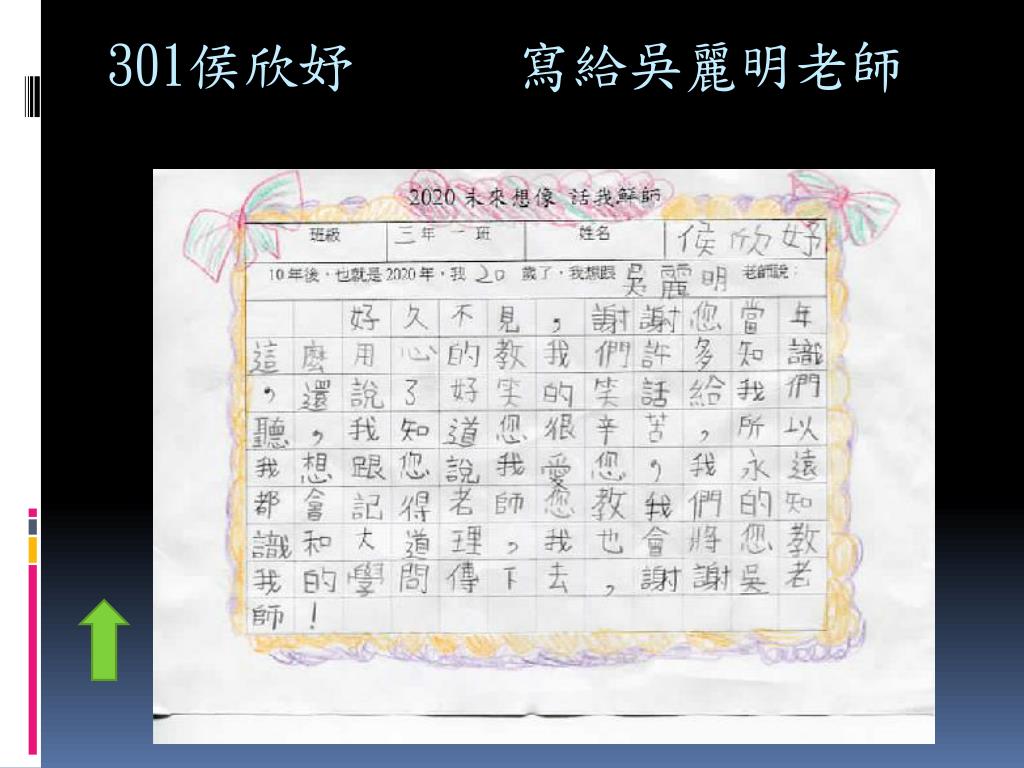 301侯欣妤 寫給吳麗明老師
2020 未來想像 話我鮮師
班級 三年 一 班 姓名 侯欣妤
10年後，也就是2020年，我 20 歲了，我想跟 吳麗明 老師說：
好久不見，謝謝您當年
這麼用心的教我們許多知識
，還說了好笑的笑話給我們
聽，我知道您很辛苦，所以
我想跟您說我愛您，我永遠
都會記得老師您教我們的知
識和大道理，我也會將您教
我的學問傳下去，謝謝吳老
師！